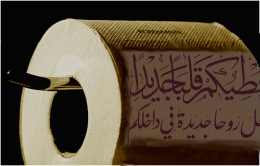 طيكم قلباً جديداً
ل روحا جديدة في داخلكم